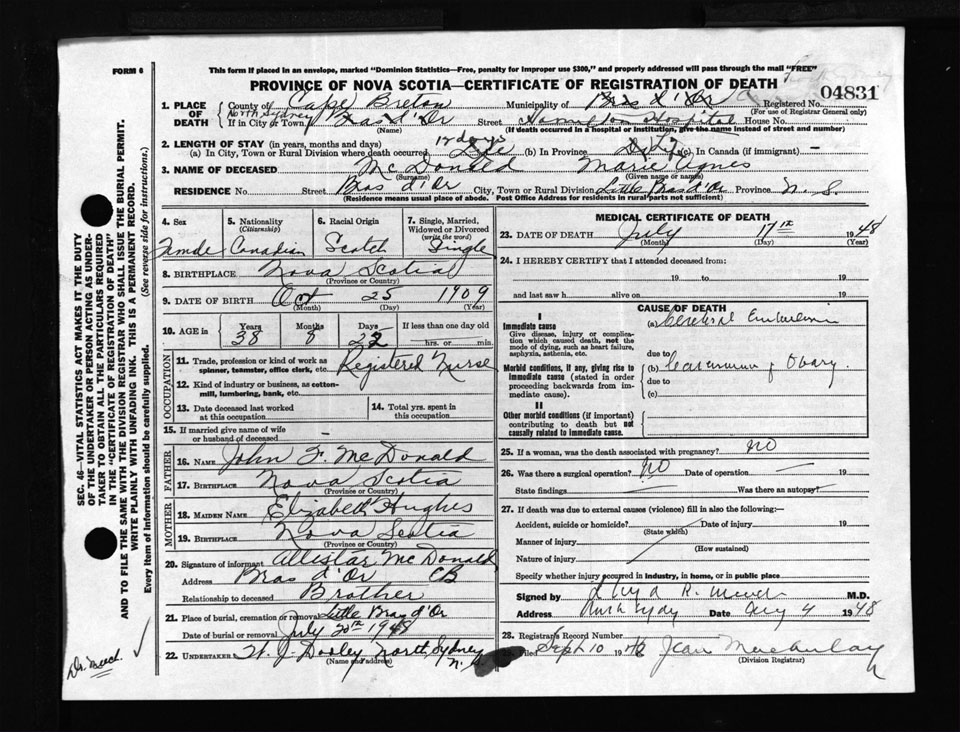 FORM 6
This form if placed in an envelope, marked "Dominion Statistics—Free, penalty for improper use $300," and properly addressed will pass through the mail "FREE"
PROVINCE OF NOVA SCOTIA—CERTIFICATE OF REGISTRATION OF DEATH
04831
1. PLACE OF DEATH County of Cape Breton Municipality of Bras d'Or Registered No.
(For use of Registrar General only)
North Sydney
If in City or Town Bras d'Or Street Hamilton Hospital House No.
(Name) (If death occurred in a hospital or institution, give the name instead of street and number)
2. LENGTH OF STAY (in years, months and days) 12 days
(a) In City, Town or Rural Division where death occurred Life (b) In Province Life (c) In Canada (if immigrant) —
3. NAME OF DECEASED McDonald Marie Agnes
(Surname) (Given name or names)
RESIDENCE No. Street Bras d'Or City, Town or Rural Division Little Bras d'Or Province N. S.
(Residence means usual place of abode. Post Office Address for residents in rural parts not sufficient)
4. Sex Female
5. Nationality (Citizenship) Canadian
6. Racial Origin Scotch
7. Single, Married, Widowed or Divorced (write the word) Single
8. BIRTHPLACE Nova Scotia
(Province or Country)
9. DATE OF BIRTH Oct 25 1909
(Month) (Day) (Year)
10. AGE in Years Months Days If less than one day
38 8 22 hrs. or min.
OCCUPATION
11. Trade, profession or kind of work as spinner, teamster, office clerk, etc. Registered Nurse
12. Kind of industry or business, as cotton-mill, lumbering, bank, etc.
13. Date deceased last worked at this occupation
14. Total yrs. spent in this occupation
15. If married give name of wife or husband of deceased —
FATHER
16. NAME John F. McDonald
17. BIRTHPLACE Nova Scotia
(Province or Country)
MOTHER
18. MAIDEN NAME Elizabeth Hughes
19. BIRTHPLACE Nova Scotia
(Province or Country)
20. Signature of informant Allistar McDonald
Address Bras d'Or CB
Relationship to deceased Brother
21. Place of burial, cremation or removal Little Bras d'Or
Date of burial or removal July 20th 1948
22. UNDERTAKER W. J. Dooley North Sydney N. S.
(Name and address)
MEDICAL CERTIFICATE OF DEATH
23. DATE OF DEATH July 17th 1948
(Month) (Day) (Year)
24. I HEREBY CERTIFY that I attended deceased from:
19 to 19
and last saw h alive on 19
CAUSE OF DEATH
I
Immediate cause
Give disease, injury or complication which caused death, not the mode of dying, such as heart failure, asphyxia, asthenia, etc.
(a) Cerebral Embolism
due to
Morbid conditions, if any, giving rise to immediate cause (stated in order proceeding backwards from immediate cause).
(b) Carcinoma of Ovary.
due to
(c)
II
Other morbid conditions (if important) contributing to death but not causally related to immediate cause.
25. If a woman, was the death associated with pregnancy? NO
26. Was there a surgical operation? NO Date of operation — 19
State findings — Was there an autopsy? —
27. If death was due to external causes (violence) fill in also the following:—
Accident, suicide or homicide? Date of injury 19
(State which)
Manner of injury
(How sustained)
Nature of injury
Specify whether injury occurred in industry, in home, or in public place
Signed by M.D.
Address North Sydney Date Aug 4 1948
28. Registrar's Record Number
Filed Sept 10 1948 Jean
(Division Registrar)
SEC. 46—VITAL STATISTICS ACT MAKES IT THE DUTY
OF THE UNDERTAKER OR PERSON ACTING AS UNDER-
TAKER TO OBTAIN ALL THE PARTICULARS REQUIRED
IN THE "CERTIFICATE OF REGISTRATION OF DEATH"
AND TO FILE THE SAME WITH THE DIVISION REGISTRAR WHO SHALL ISSUE THE BURIAL PERMIT.
WRITE PLAINLY WITH UNFADING INK. THIS IS A PERMANENT RECORD.
Every item of Information should be carefully supplied. (See reverse side for instructions.)